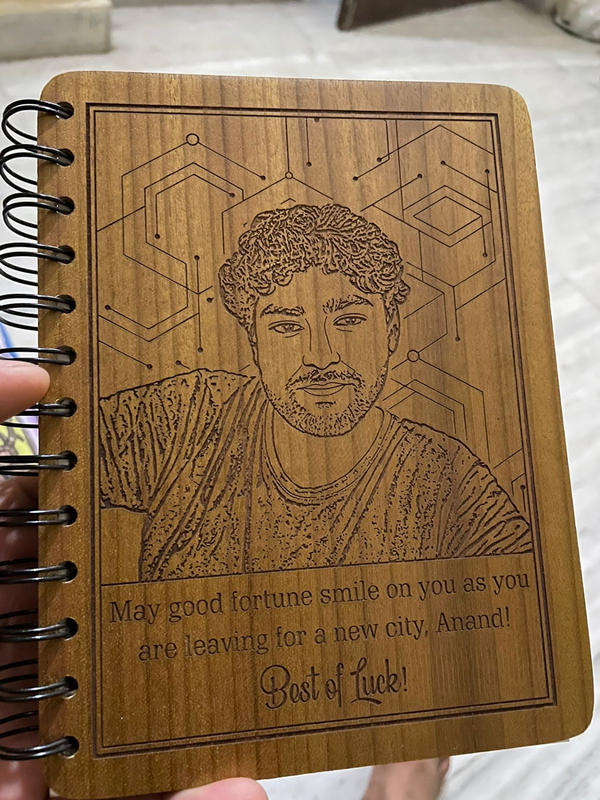 May good fortune smile on you as you
are leaving for a new city, Anand!
Best of Luck!